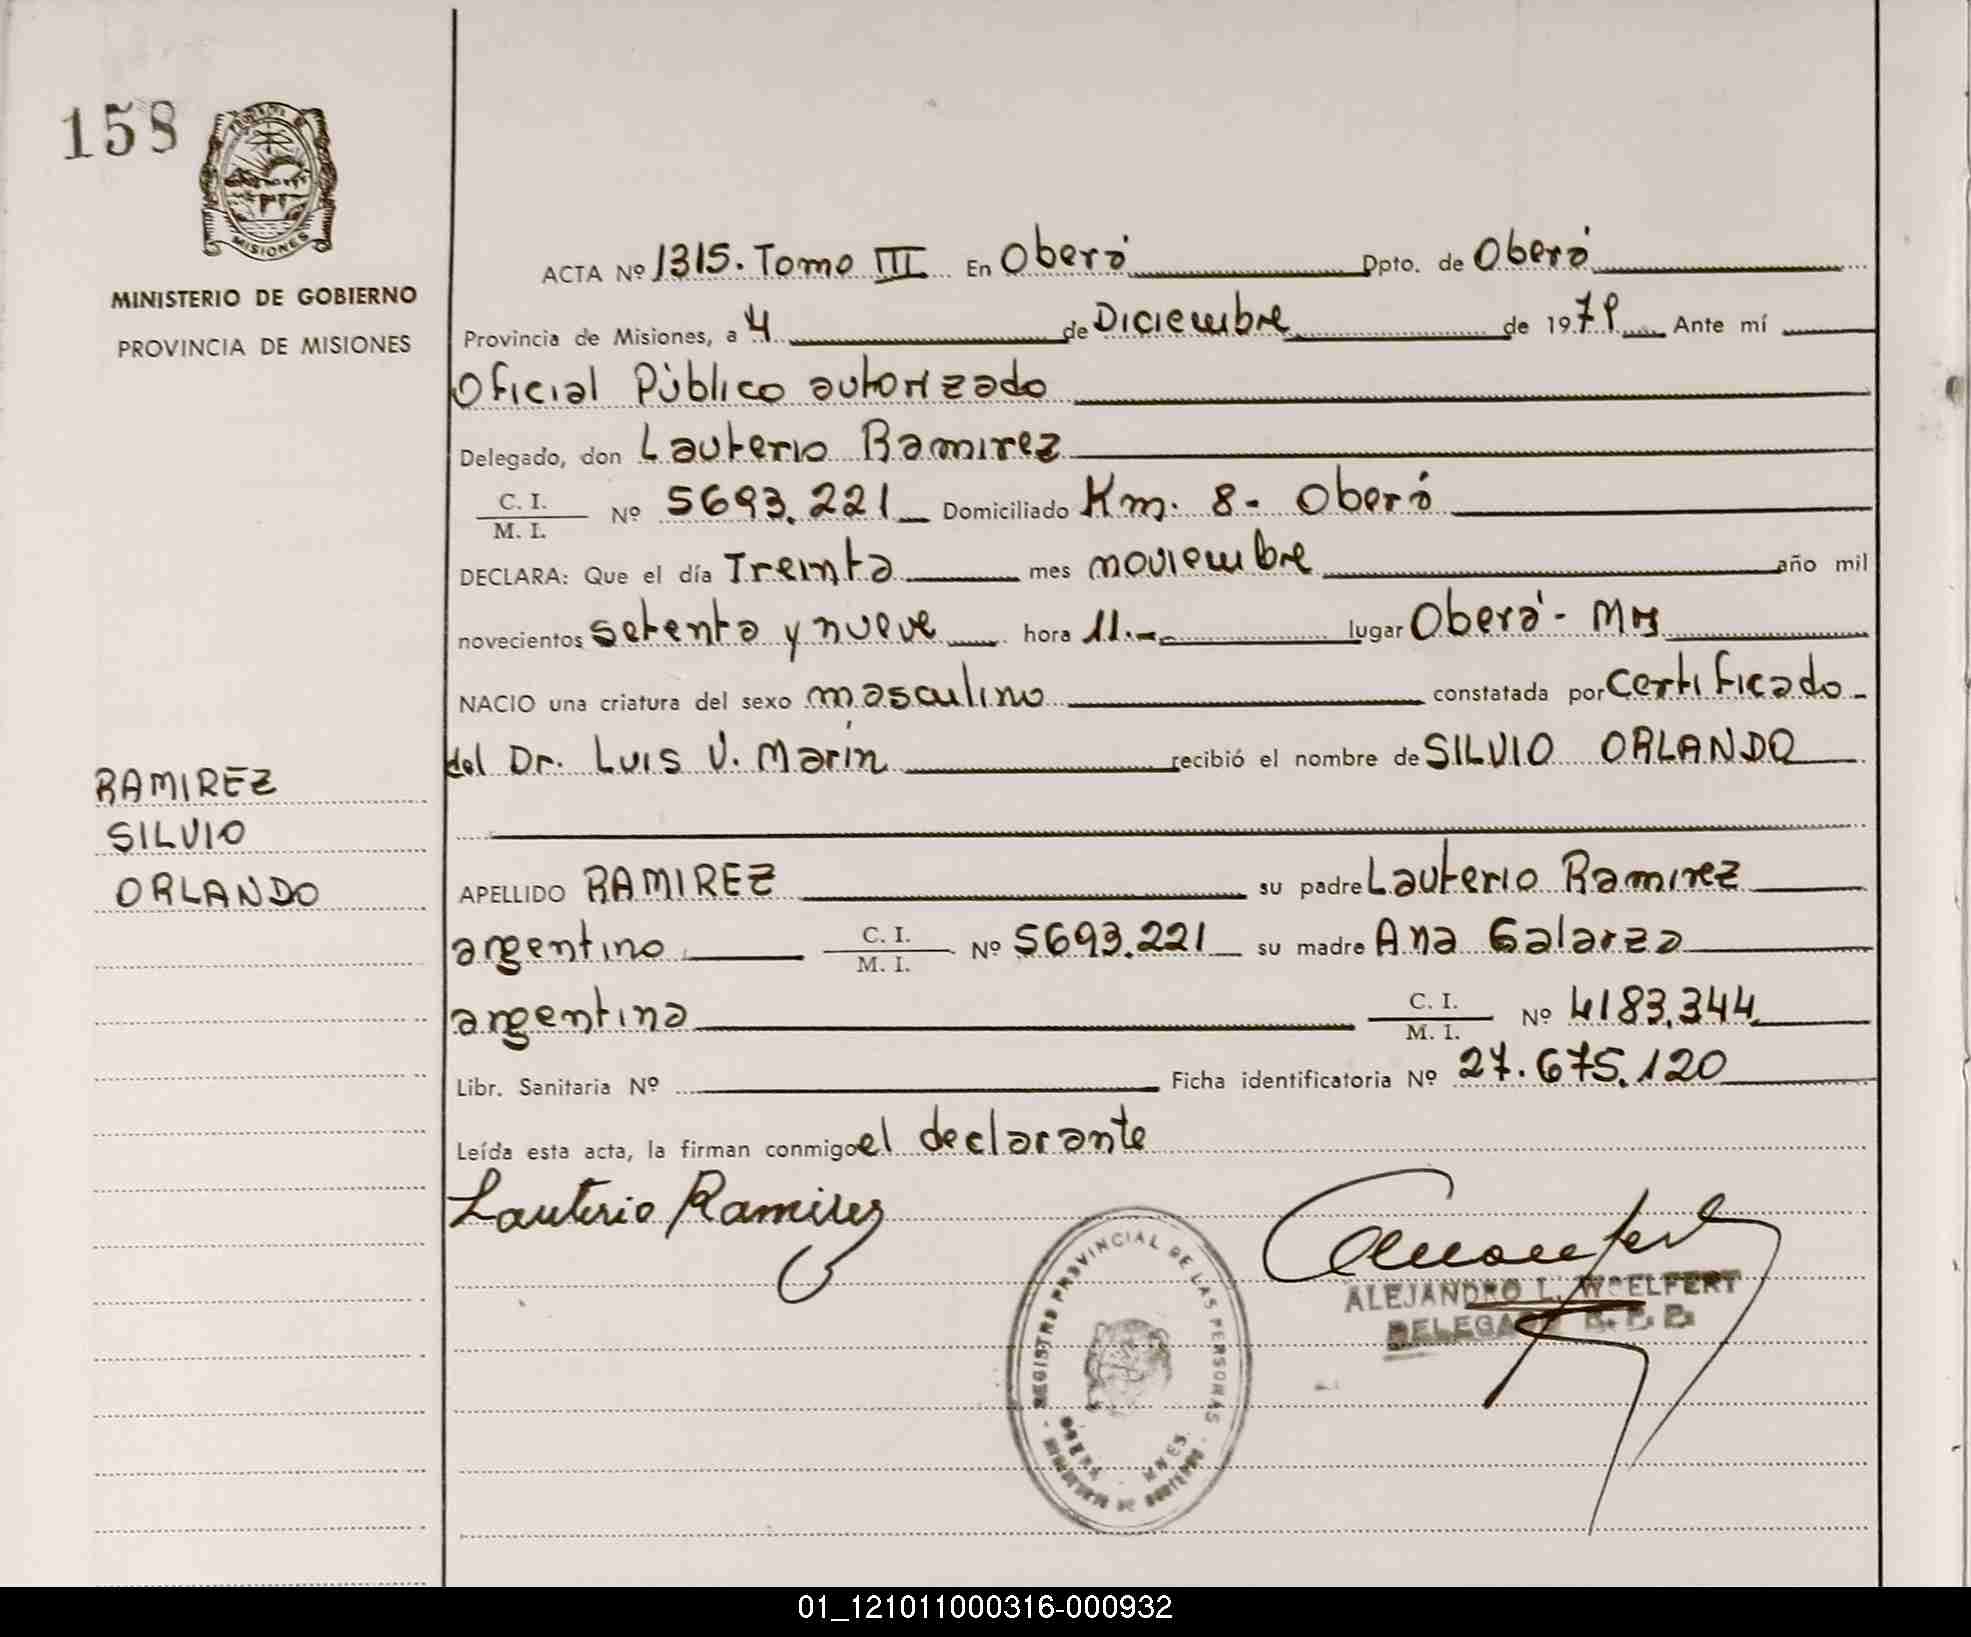 158
MISIONES
MINISTERIO DE GOBIERNO
PROVINCIA DE MISIONES
ACTA Nº 1315. Tomo III En Oberá Dpto. de Oberá
Provincia de Misiones, a 4 de Diciembre de 1979 Ante mí
Oficial Público autorizado
Delegado, don Lauterio Ramirez
C. I.
M. I. Nº 5693.221 Domiciliado Km. 8 - Oberá
DECLARA: Que el día Treinta mes noviembre año mil
novecientos setenta y nueve hora 11.- lugar Oberá - Mns
NACIO una criatura del sexo masculino constatada por Certificado
del Dr. Luis V. Marín recibió el nombre de SILVIO ORLANDO
RAMIREZ
SILVIO
ORLANDO
APELLIDO RAMIREZ su padre Lauterio Ramirez
argentino C. I.
M. I. Nº 5693.221 su madre Ana Galarza
argentina C. I.
M. I. Nº 4183.344
Libr. Sanitaria Nº Ficha identificatoria Nº 27.675.120
Leída esta acta, la firman conmigo el declarante
Lauterio Ramirez
REGISTRO PROVINCIAL DE LAS PERSONAS
OBERA - MNES.
MINISTERIO DE GOBIERNO
ALEJANDRO L. WOELFERT
DELEGADO R. P. P.
01_121011000316-000932